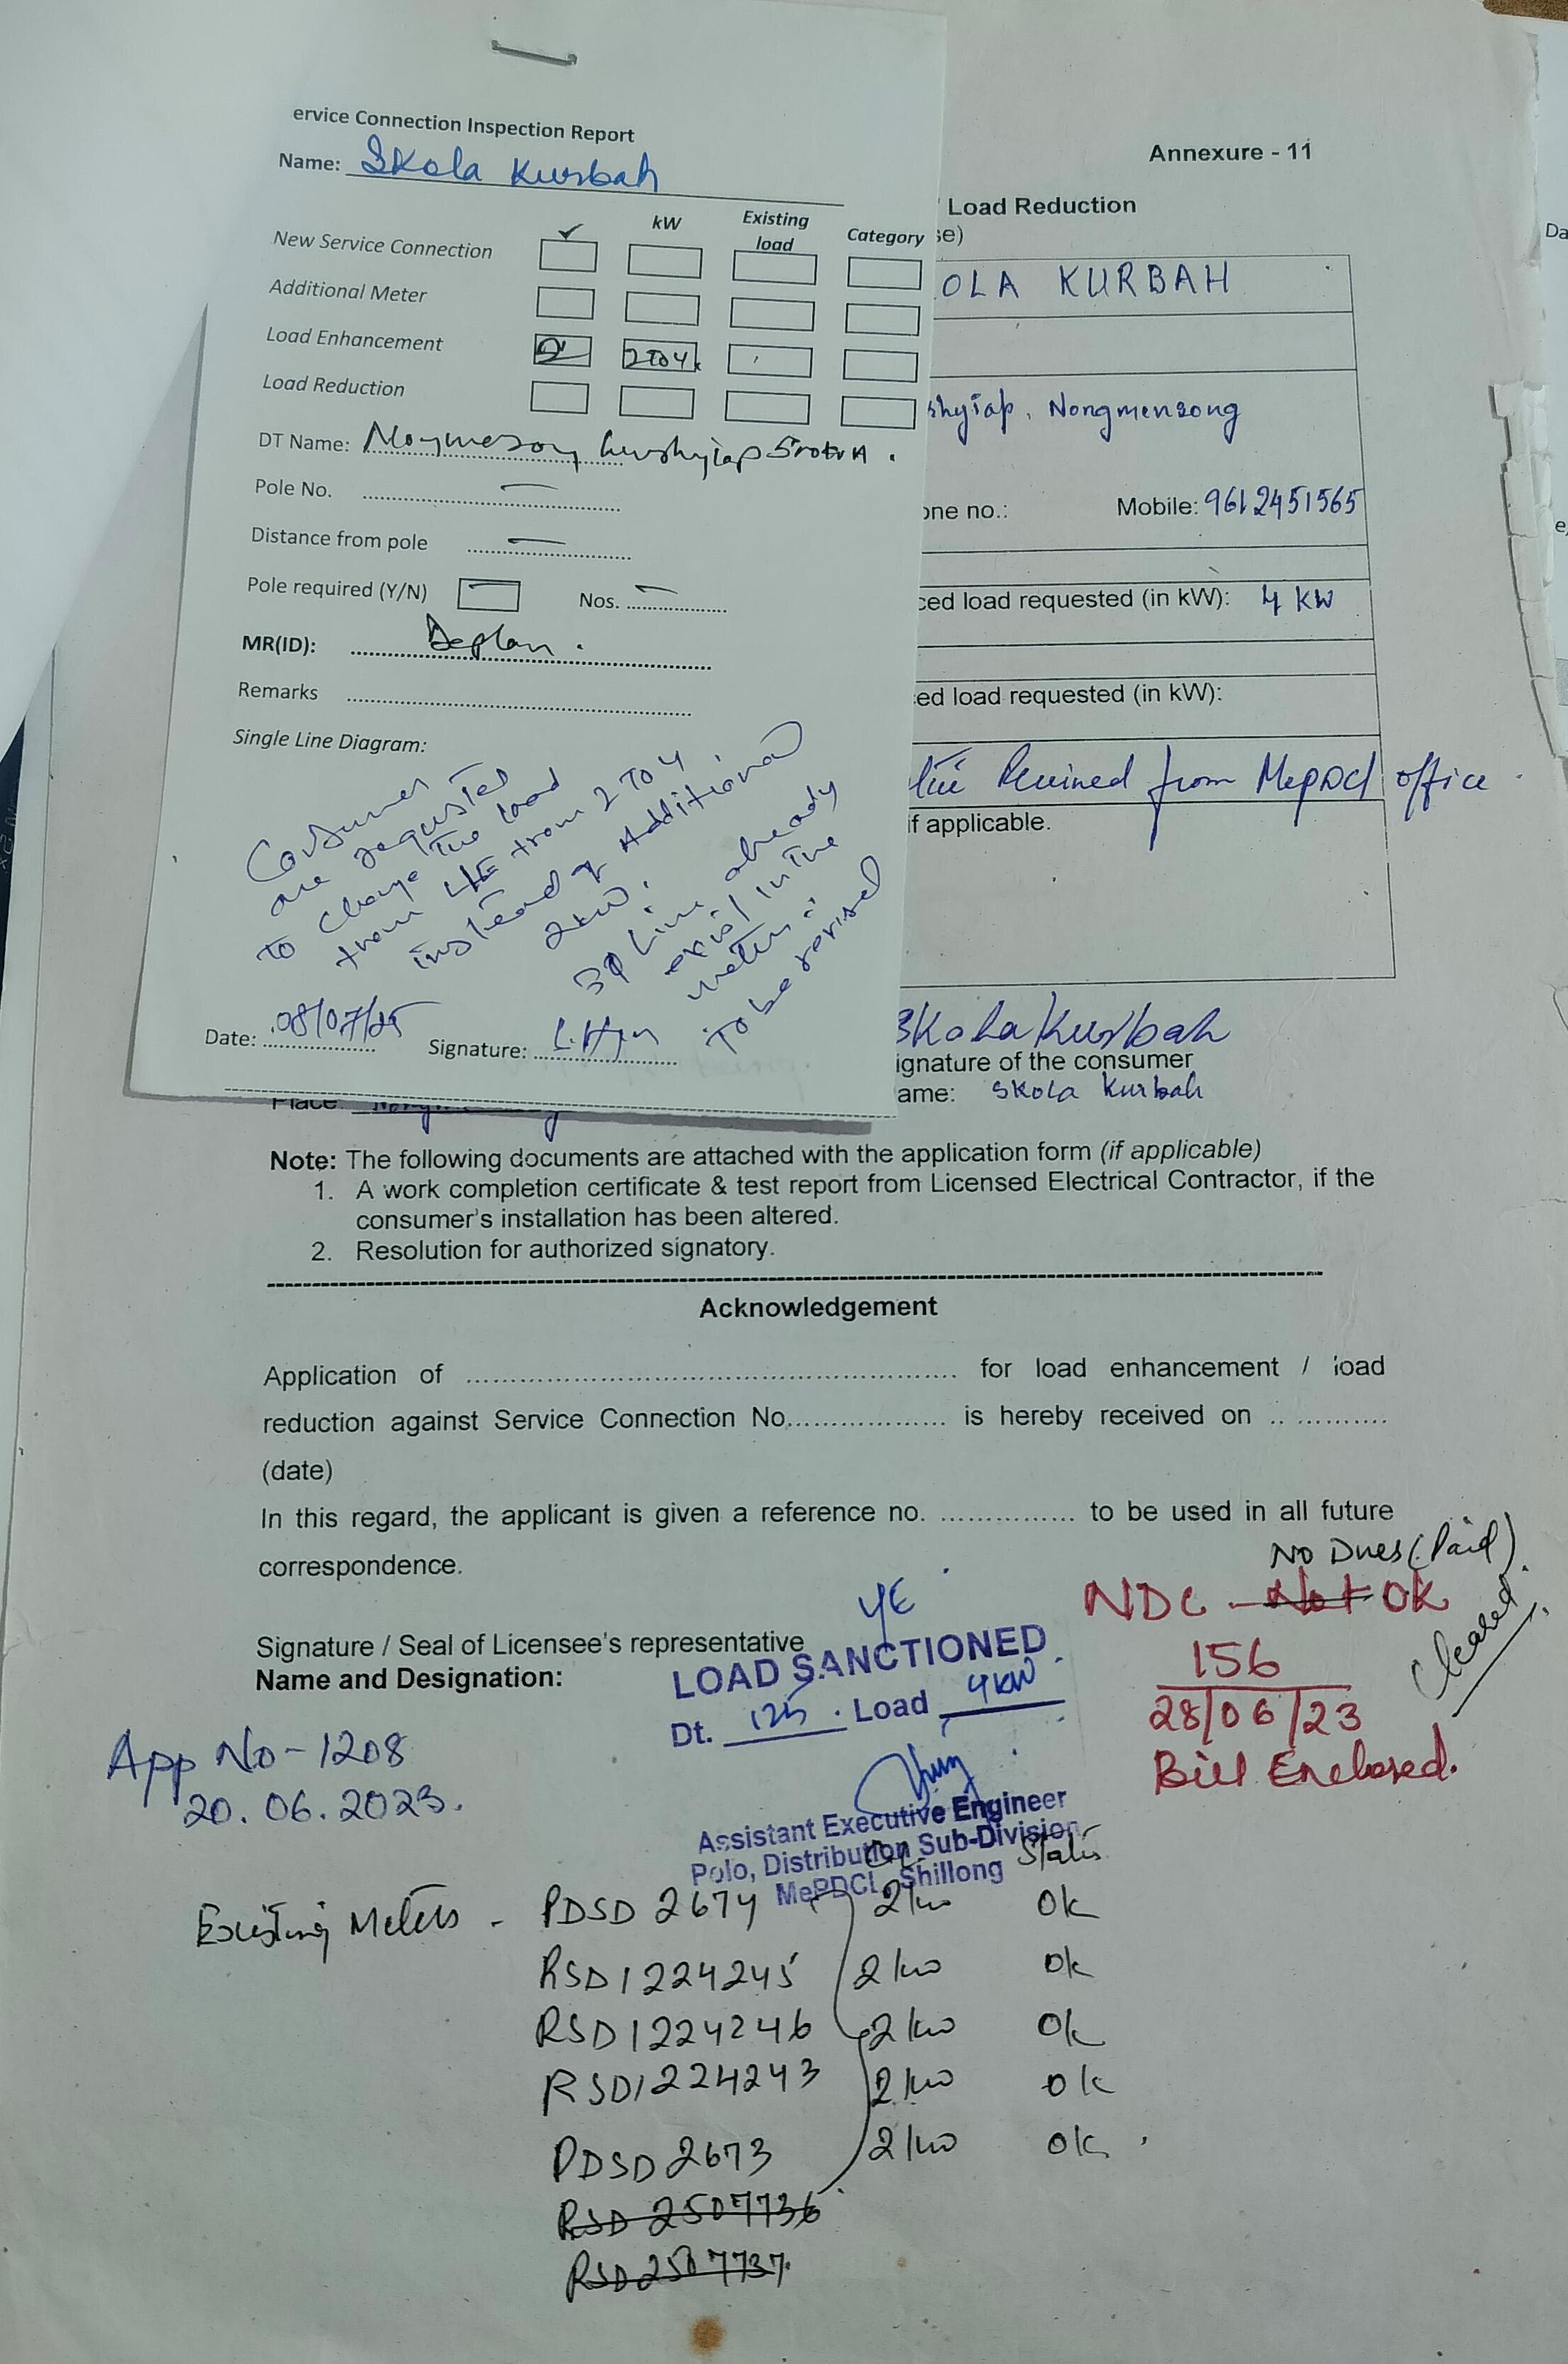 ervice Connection Inspection Report
Name: Skola Kurbah
✓ kW Existing load Category
New Service Connection
Additional Meter
Load Enhancement 2 TO 4
Load Reduction
DT Name:
Pole No. —
Distance from pole —
Pole required (Y/N) — Nos. —
MR(ID):
Remarks
Single Line Diagram:
Consumer
are requested
to change the load
from LE from 2 TO 4
instead of Additional
2kW.
3φ line already
exist in the
meter
to be revised
Date: 08/07/25 Signature:
Annexure - 11
Load Reduction
se)
OLA KURBAH
shyiap, Nongmensong
one no.: Mobile: 9612451565
ced load requested (in kW): 4 KW
ed load requested (in kW):
from MePDCl office
if applicable.
Skola Kurbah
ignature of the consumer
ame: Skola Kurbah
Place:
Note: The following documents are attached with the application form (if applicable)
1. A work completion certificate & test report from Licensed Electrical Contractor, if the
consumer's installation has been altered.
2. Resolution for authorized signatory.
Acknowledgement
Application of ........ for load enhancement / load
reduction against Service Connection No........ is hereby received on ........
(date)
In this regard, the applicant is given a reference no. ........ to be used in all future
correspondence.
No Dues (Paid)
NDC - Not OK
Cleared.
156
28/06/23
Bill Enclosed.
Signature / Seal of Licensee's representative
Name and Designation:
LOAD SANCTIONED
Dt. Load 4kW
App No - 1208
20.06.2023.
Assistant Executive Engineer
Polo, Distribution Sub-Division
MePDCL, Shillong
Status
Existing Meters - PDSD 2674 2kw Ok
RSD1224245 2kw Ok
RSD1224246 2kw Ok
RSD1224243 2kw Ok
PDSD2673 2kw Ok
RSD 2507736
RSD2507737